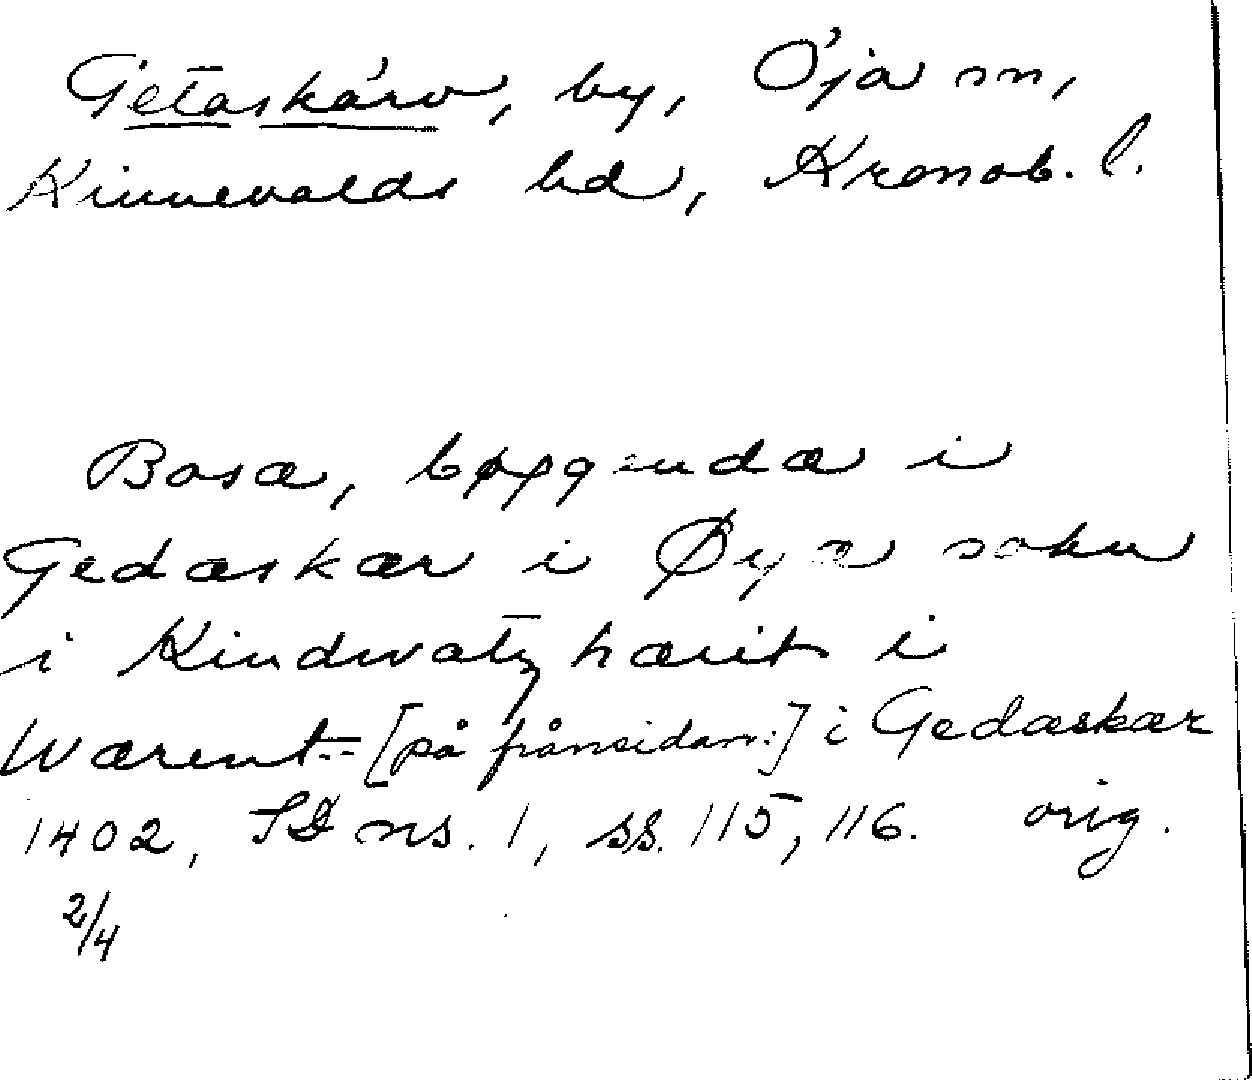 Getaskärv, by, Öja sn,
Kinnevalds hd, Kronob. l.
Bosæ, bøggendæ i
Gedæskær i Øyæ sokn
i Kindwatz hærit i
Wærent [på frånsidan:] i Gedæskær
1402, SD ns. 1, ss. 115, 116. orig.
2/4